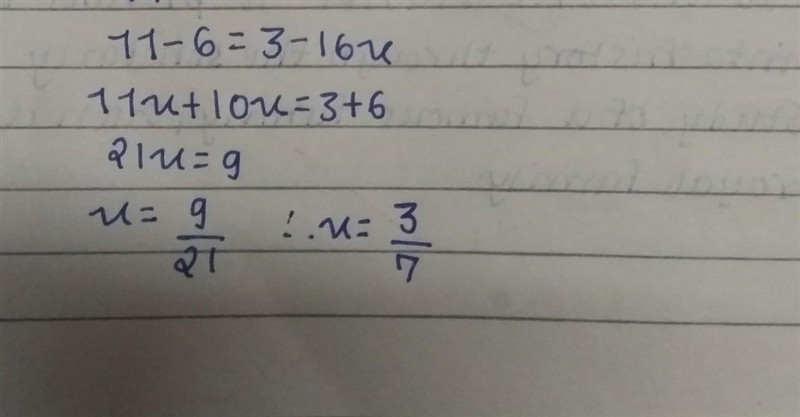 11-6=3-16x
11x+10x=3+6
21x=9
x=9/21 ∴x=3/7